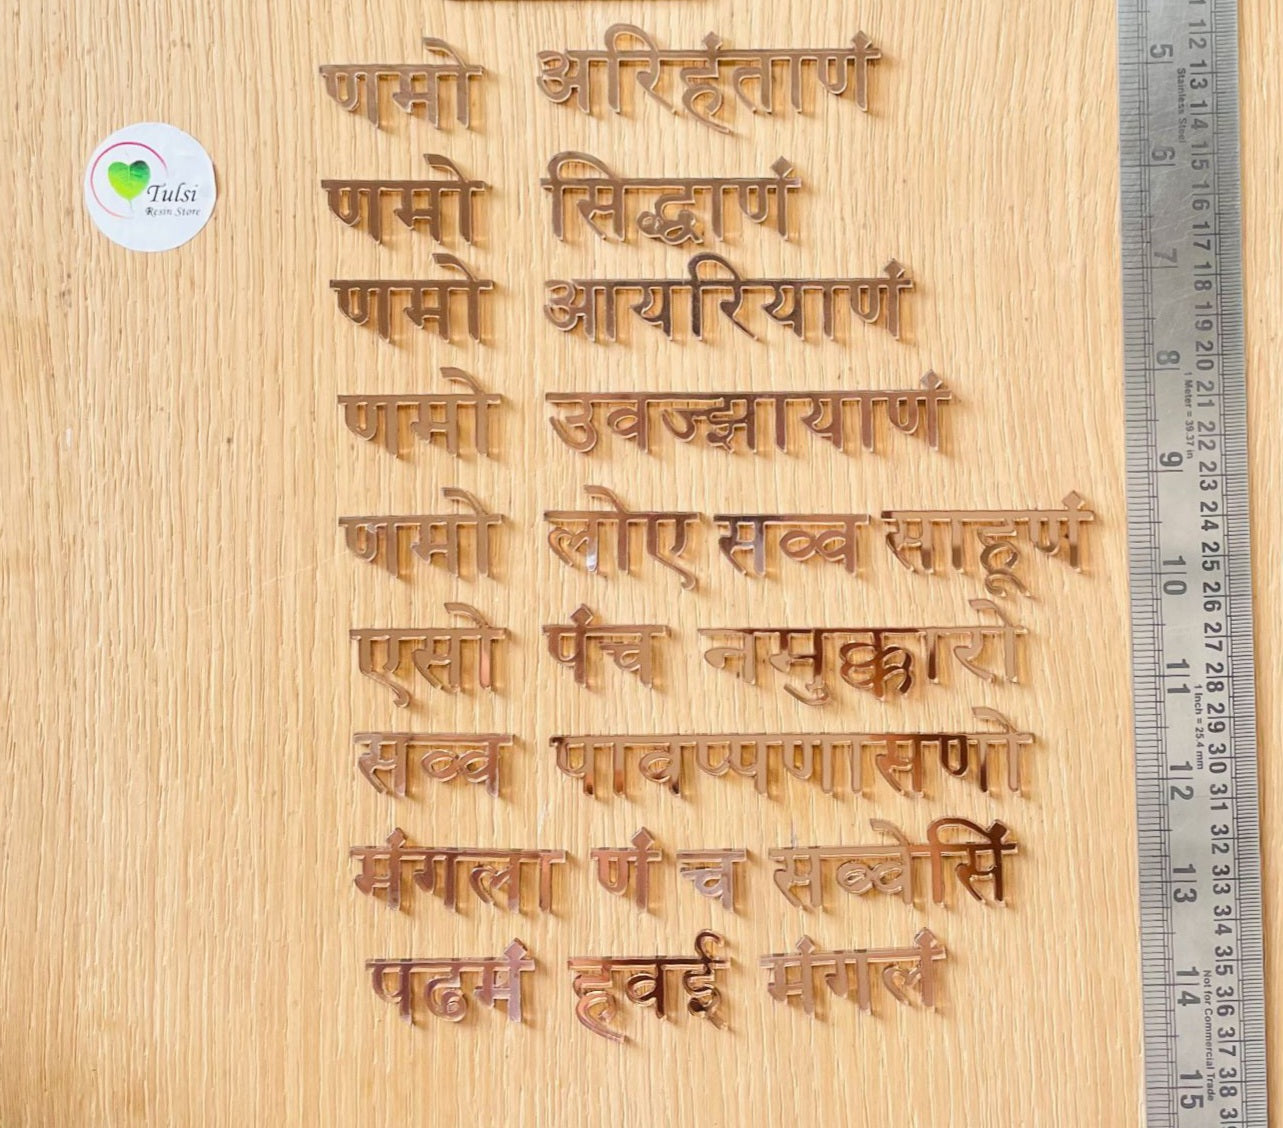 णमो अरिहंताणं
णमो सिद्धाणं
णमो आयरियाणं
णमो उवज्झायाणं
णमो लोए सव्व साहूणं
एसो पंच नमुक्कारो
सव्व पावप्पणासणो
मंगला णं च सव्वेसिं
पढमं हवई मंगलं
Tulsi
Resin Store
5 6 7 8 9 10 11 12 13 14 15
11 12 13 14 15 16 17 18 19 20 21 22 23 24 25 26 27 28 29 30 31 32 33 34 35 36 37 38
Stainless Steel
1 Meter = 39.37 in
1 Inch = 25.4 mm
Not for Commercial Trade